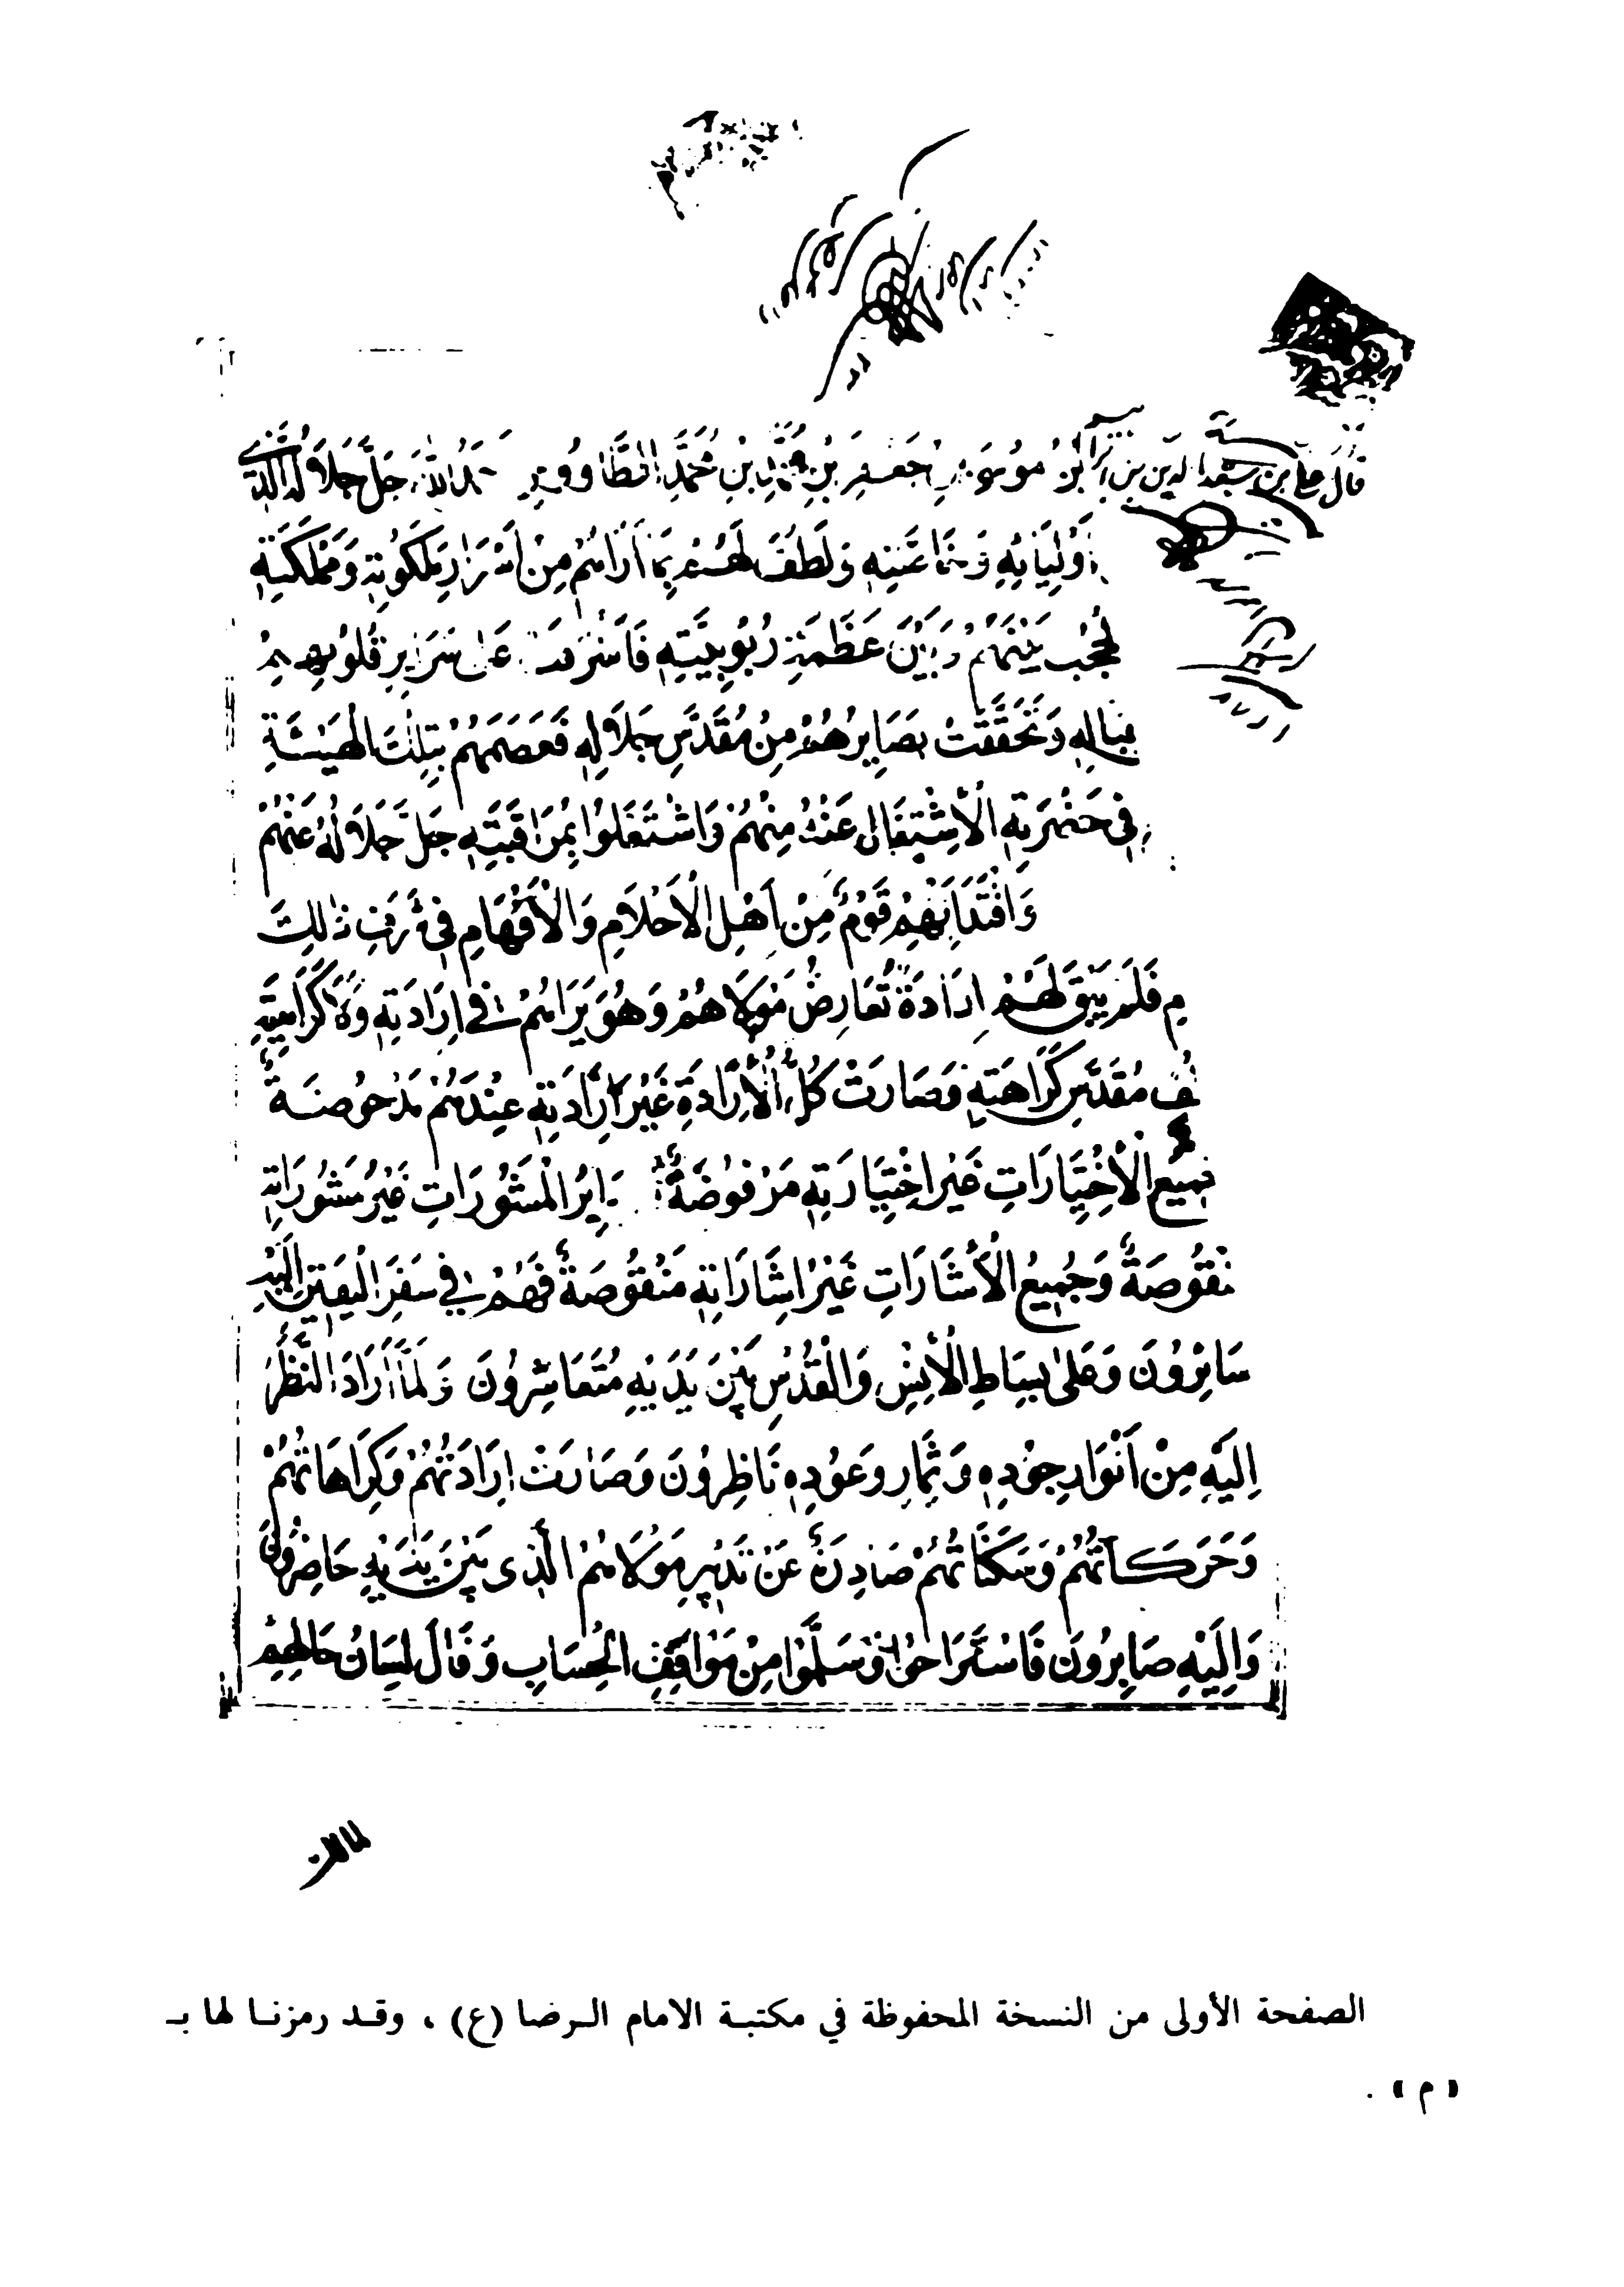 قَالَ بن سعد الدين بن ابْنُ مُوسَى جَعْفَرِ بْنِ بْنِ مُحَمَّدٍ الطَّاوُوسِ اللهَ جَلَّ جَلَالُهُ الَّذِي
أَوْلِيَائِهِ وَلَطُفَ لَهُمْ بِمَا أَرَاهُمْ مِنْ أَسْرَارِ مَلَكُوتِهِ وَمَمْلَكَتِهِ
لحُجُب بَيْنَهُمْ وَبَيْنَ عَظَمَةِ رُبُوبِيَّتِهِ فَأَشْرَقَتْ عَلَى سَرَايِرِ قُلُوبِهِمْ
وَتَحَقَّقَتْ بَصَايِرُهُمْ مِنْ مُقَدَّسِ جَلَالِهِ فَعَصَمَهُمْ بِتِلْكَ الْهَيْبَةِ
فِي حَضْرَتِهِ الْاِشْتِغَالِ عَنْهُ مِنْهُمْ وَاشْتَغَلُوا بِمُرَاقَبَتِهِ جَلَّ جَلَالُهُ عَنْهُمْ
وَاقْتَدَا بِهِمْ قَوْمٌ مِنْ أَهْلِ الْأَحْلَامِ وَالْأَفْهَامِ فِي ذٰلِكَ
م فَلَمْ يَبْقَ لَهُمْ إِرَادَةٌ تُعَارِضُ مَوْلَاهُمْ وَهُوَ يَرَاهُمْ فِي إِرَادَتِهِ وَلَا كَرَاهِيَةٍ
مُقَدَّسِ كَرَاهَتِهِ وَصَارَتْ كُلُّ الْإِرَادَةِ غَيْرَ إِرَادَتِهِ عِنْدَهُمْ مَدْحُوضَةٌ
جميعُ الْاِخْتِيَارَاتِ غَيْرَ اخْتِيَارَتِهِ مَرْفُوضَةٌ وَ سَايِرُ الْمَشُورَاتِ غَيْرَ مَشُورَاتِهِ
نْقُوصَةٌ وَجَمِيعُ الْأَشَارَاتِ غَيْرَ إِشَارَاتِهِ مَنْقُوصَةٌ فَهُمْ فِي سَفَرِ الْيَقِينِ إِلَيْهِ
سَائِرُونَ وَعَلَى بِسَاطِ الْاُنْسِ وَالْقُدْسِ بَيْنَ يَدَيْهِ مُتَعَاشِرُونَ وَلَمَّا أَرَادَ النَّظَرَ
إِلَيْهِ مِنْ أَنْوَارِ جُودِهِ وَثِمَارِ وُعُودِهِ نَاظِرُونَ وَصَارَتْ إِرَادَتُهُمْ وَكَرَاهَاتُهُمْ
وَحَرَكَاتُهُمْ وَسَكَنَاتُهُمْ صَادِرَةٌ عَنْ تَدْبِيرِ مَوْلَاهُمُ الَّذِي بَيْنَ يَدَيْهِ حَاضِرُونَ
وَإِلَيْهِ صَايِرُونَ فَاسْتَرَاحُوا وَسَلَّمُوا مِنْ مَوَاقِفِ الْحِسَابِ وَقَالَ لِسَانُ حَالِهِمْ
الصفحة الأولى من النسخة المحفوظة في مكتبة الامام الرضا (ع) ، وقد رمزنا لها بـ
« م » .